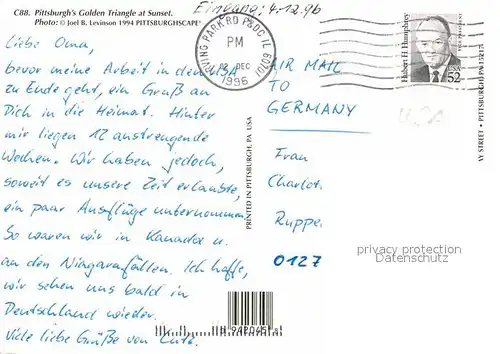 C88. Pittsburgh's Golden Triangle at Sunset.
Photo: © Joel B. Levinson 1994 PITTSBURGHSCAPE
Eingang: 4.12.96
Liebe Oma,
bevor meine Arbeit in den USA
zu Ende geht, ein Gruß an
Dich in die Heimat. Hinter
mir liegen 12 anstrengende
Wochen. Wir haben jedoch,
soweit es unsere Zeit erlaubte,
ein paar Ausflüge unternommen.
So waren wir in Kanada u.
an den Niagarafällen. Ich hoffe,
wir sehen uns bald in
Deutschland wieder.
Viele liebe Grüße von Lutz.
IRVING PARK RD P&DC IL 60701
PM
02 DEC
1996
Hubert H. Humphrey
VICE PRESIDENT
USA
52
AIR MAIL
TO
GERMANY
USA
Frau
Charlot.
Ruppe.
0127
privacy protection
Datenschutz
PRINTED IN PITTSBURGH, PA. USA
W STREET • PITTSBURGH, PA 15215